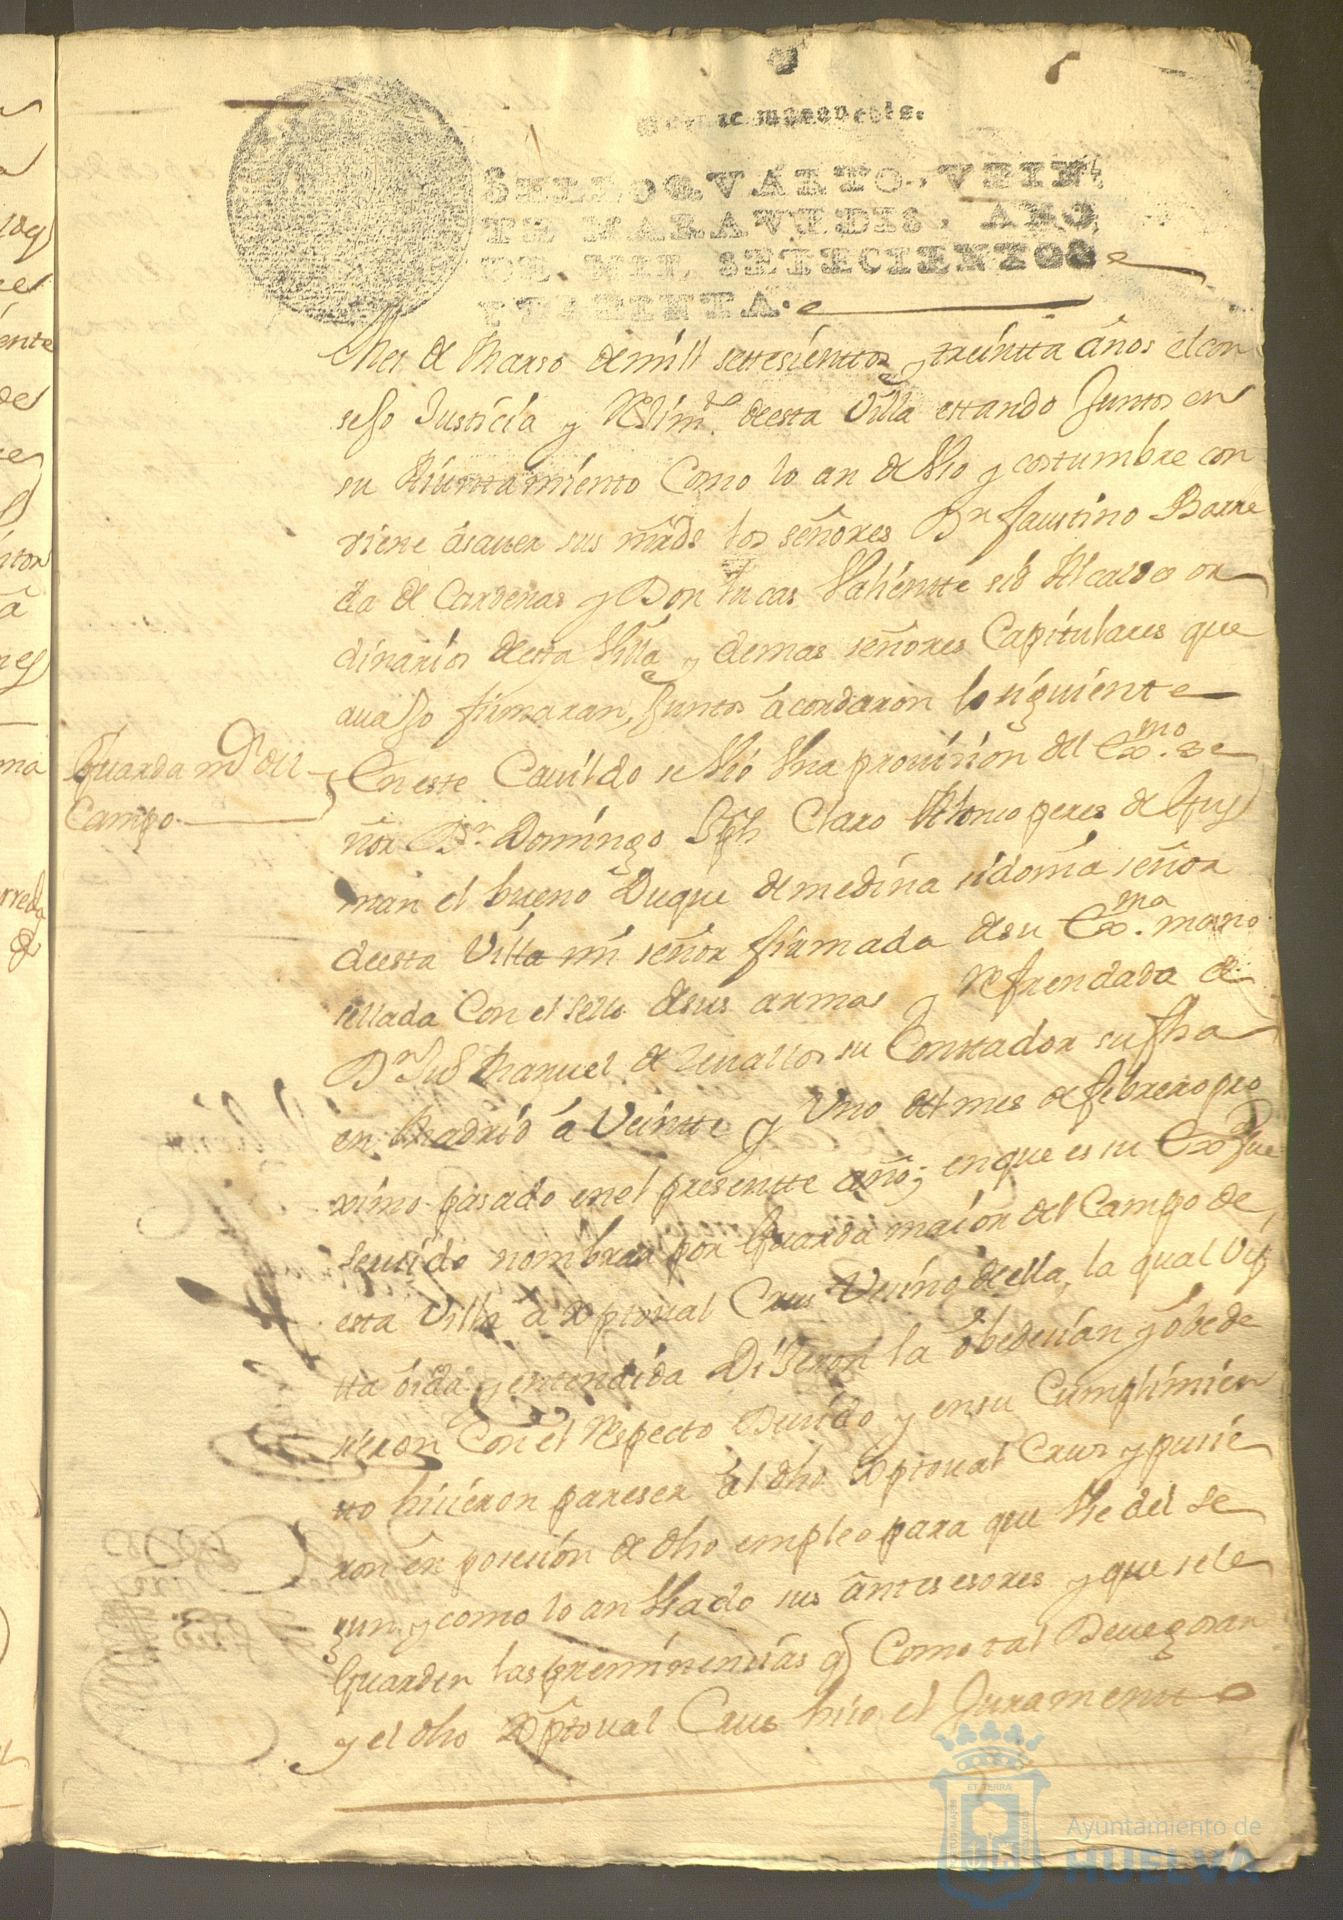 Veinte maravedis.
SELLO QVARTO, VEIN
TE MARAVEDIS, AÑO
DE MIL SETECIENTOS
Y TREINTA.
Mes de Marso de mill settesientos y treintta años el con
sejo Justicia y Rejim.to de esta Villa estando Juntos en
su Aiuntamiento Como lo an de Vso y costumbre con
viene âsaver sus mrds los señores Dn faustino Barre
da de Cardenas y Don lucas Valientte Alcaldes or
dinarios de esta Villa y demas señores Capitulares que
avajo firmaran, Juntos âcordaron lo siguiente
Guarda mr del
Campo
En este Cavildo se Vio Vna provision del Exmo. se
ñor Dn. Domingo Jph Claro Alonso peres de Gus
man el bueno Duque de medina sidonia señor
de esta Villa mi señor firmada de su Exma. mano
sellada Con el sello de sus armas y Refrendada de
Dn Manuel de Zevallos su Conttador su fha
en Madrid â Veintte y Vno del mes de febrero pro
ximo pasado en el presentte año; en que es su Exa Ser
servido nombrar por Guarda maior del Campo de
esta Villa â Xptoval Crus Vesino de ella, la qual Vis
tta oida y entendida Dijeron la obedecian y obede
sieron Con el Respecto Devido y en su Cumplimien
tto hisieron pareser âl dho Xptoval Crus y pusie
ron en posesion de dho empleo para que Vse del se
gun y como lo an Vsado sus antesesores y que se le
Guarden las preminensias q Como tal Deve gosar
y el dho Xptoval Crus hiso el Juramento
ET TERRA
Ayuntamiento de
HUELVA